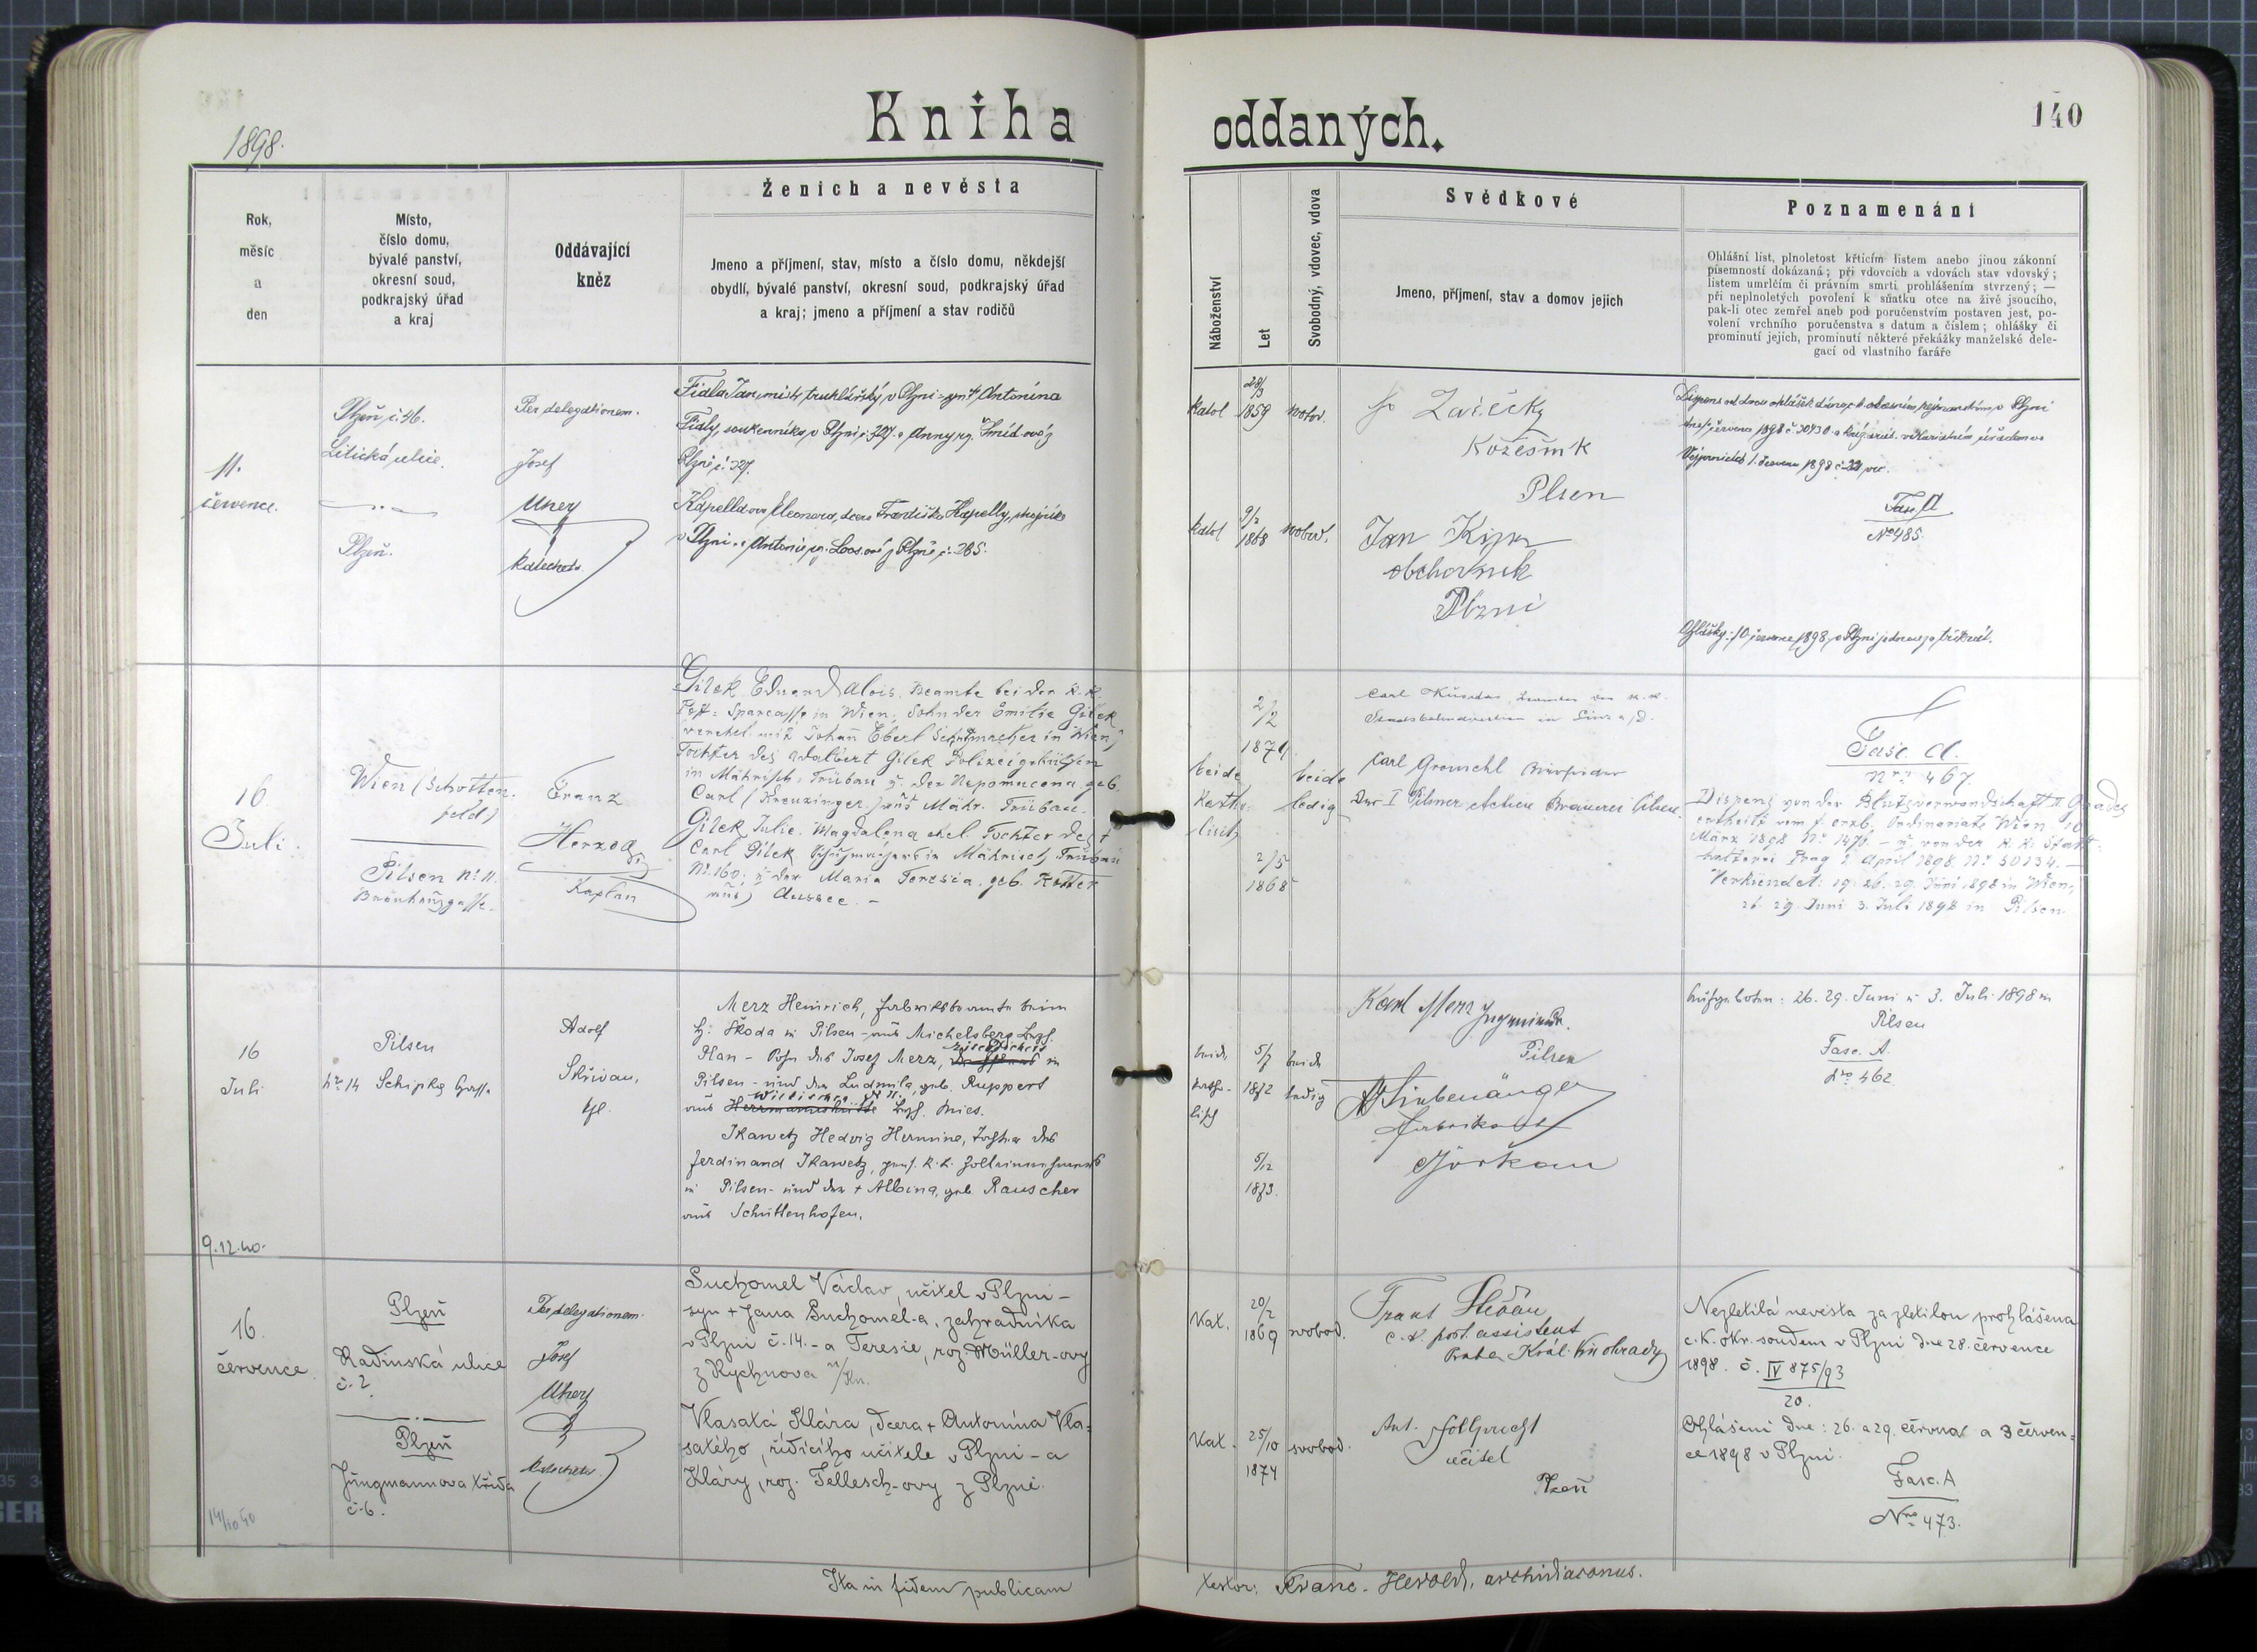 1898.
Kniha
oddaných.
140
Rok,
měsíc
a
den
Místo,
číslo domu,
bývalé panství,
okresní soud,
podkrajský úřad
a kraj
Oddávající
kněz
Ženich a nevěsta
Jmeno a příjmení, stav, místo a číslo domu, někdejší
obydlí, bývalé panství, okresní soud, podkrajský úřad
a kraj; jmeno a příjmení a stav rodičů
Náboženství
Let
Svobodný, vdovec, vdova
Svědkové
Jmeno, příjmení, stav a domov jejich
Poznamenání
Ohlášní list, plnoletost křticím listem anebo jinou zákonní
písemností dokázaná; při vdovcích a vdovách stav vdovský;
listem umrlčím či právním smrti prohlášením stvrzený; —
při neplnoletých povolení k sňatku otce na živě jsoucího,
pak-li otec zemřel aneb pod poručenstvím postaven jest, po-
volení vrchního poručenstva s datum a číslem; ohlášky či
prominutí jejich, prominutí některé překážky manželské dele-
gací od vlastního faráře
11.
července.
Plzeň č. 46.
Litická ulice.
Plzeň.
Per delegationem.
Josef
Uherz
katecheta
Fiala Jan, mistr truhlářský v Plzni - syn † Antonína
Fialy, soukenníka v Plzni č. 327. a Anny roz. Šmíd-ové z
Plzně č. 327.
Kapellova Eleonora, dcera Františka Kapelly,
v Plzni a Antonie roz. Loos-ové z Plzně č. 285.
katol
28/3
1859
svobod.
katol
9/2
1868
svobod.
Kožešník
Plsen
Jan
obchodník
Plzni
1. července 1898 č.
Fasc. A
No 485.
Ohlášky: 10. července 1898 v Plzni jednou za třikrát.
16
Juli.
Wien (Schotten-
feld)
Pilsen No 11.
Bräuhausgasse.
Franz
Herzog
Kaplan
Gilek Eduard Alois, Beamte bei der k. k.
Post-Sparcasse in Wien, Sohn der Emilie Gilek
verehel. mit Johan Eberl Schuhmacher in Wien,
Tochter des Adalbert Gilek Polizeigehülfen
in Mährisch-Trübau u. der Nepomucena geb.
Carl (Kreuzinger) aus Mähr. Trübau.
Gilek Julie Magdalena ehel. Tochter des †
Carl Gilek Schuhmachers in Mährisch Trübau
No 160. u. der Maria Teresia geb. Kotter
aus Aussee. -
beide
Katho-
lisch
2/2
1871
2/5
1868
beide
ledig
Carl
Staatsbahndirection in Linz a/D.
Carl Gromschl
der I Pilsner Actien Brauerei Pilsen.
Fasc. A.
Nro 467.
Dispens von der Blutsverwandschaft II Grades
ertheilt vom f. erzb. Ordinariate Wien 10
März 1898 No 1476. - u. von der k. k. Statt-
halterei Prag 2 April 1898 No 50134. -
Verkündet: 19. 26. 29. Juni 1898 in Wien,
26. 29. Juni 3. Juli 1898 in Pilsen.
16
Juli
Pilsen
Nro 14 Schipka Gasse
Adolf
Skřivan,
Merz Heinrich, Fabriksbeamte beim
H: Škoda in Pilsen - aus Michelsberg Bezh.
Plan - Sohn des Josef Merz, in
Pilsen - und der Ludmila, geb. Ruppert
aus Herrmannshütte Bezh. Mies.
Ikawetz Hedvig Hermine, Tochter des
Ferdinand Ikawetz, pens. k. k. Zolleinnehmers
in Pilsen - und der † Albina, geb. Rauscher
aus Schüttenhofen.
9.12.40.
beide
katho-
lisch
5/7
1872
5/12
1873.
beide
ledig
Karl Merz Ingenieur.
Pilsen
Siebenäuger
Fabrikant
Görkau
Aufgeboten: 26. 29. Juni u 3. Juli 1898 in
Pilsen
Fasc. A.
Nro 462
16.
července
Plzeň
Radinská ulice
č. 2.
Plzeň
Jungmannova třída
č. 6.
14/10 40
Per delegationem.
Josef
Uherz
katecheta
Suchomel Václav, učitel v Plzni -
syn † Jana Suchomel-a, zahradníka
v Plzni č. 14. - a Teresie, roz. Müller-ovy
z Rychnova n/Kn.
Vlasatá Klára, dcera † Antonína Vla-
satého, řídícího učitele v Plzni - a
Kláry, roz. Tellesch-ovy z Plzně.
Kat.
20/2
1869
svobod.
Kat.
25/10
1874
svobod.
Frant
c. k. post. assistent
Praha Král. Vinohrady
Ant.
učitel
Plzeň
Nezletilá nevěsta za zletilou prohlášena
c. k. okr. soudem v Plzni dne 28. července
1898. č. IV 875/93
20.
Ohlášeni dne: 26. a 29. června a 3 červen-
ce 1898 v Plzni.
Fasc. A
Nro 473.
Ita in fidem publicam
testor: Franc. Herold, archidiaconus.